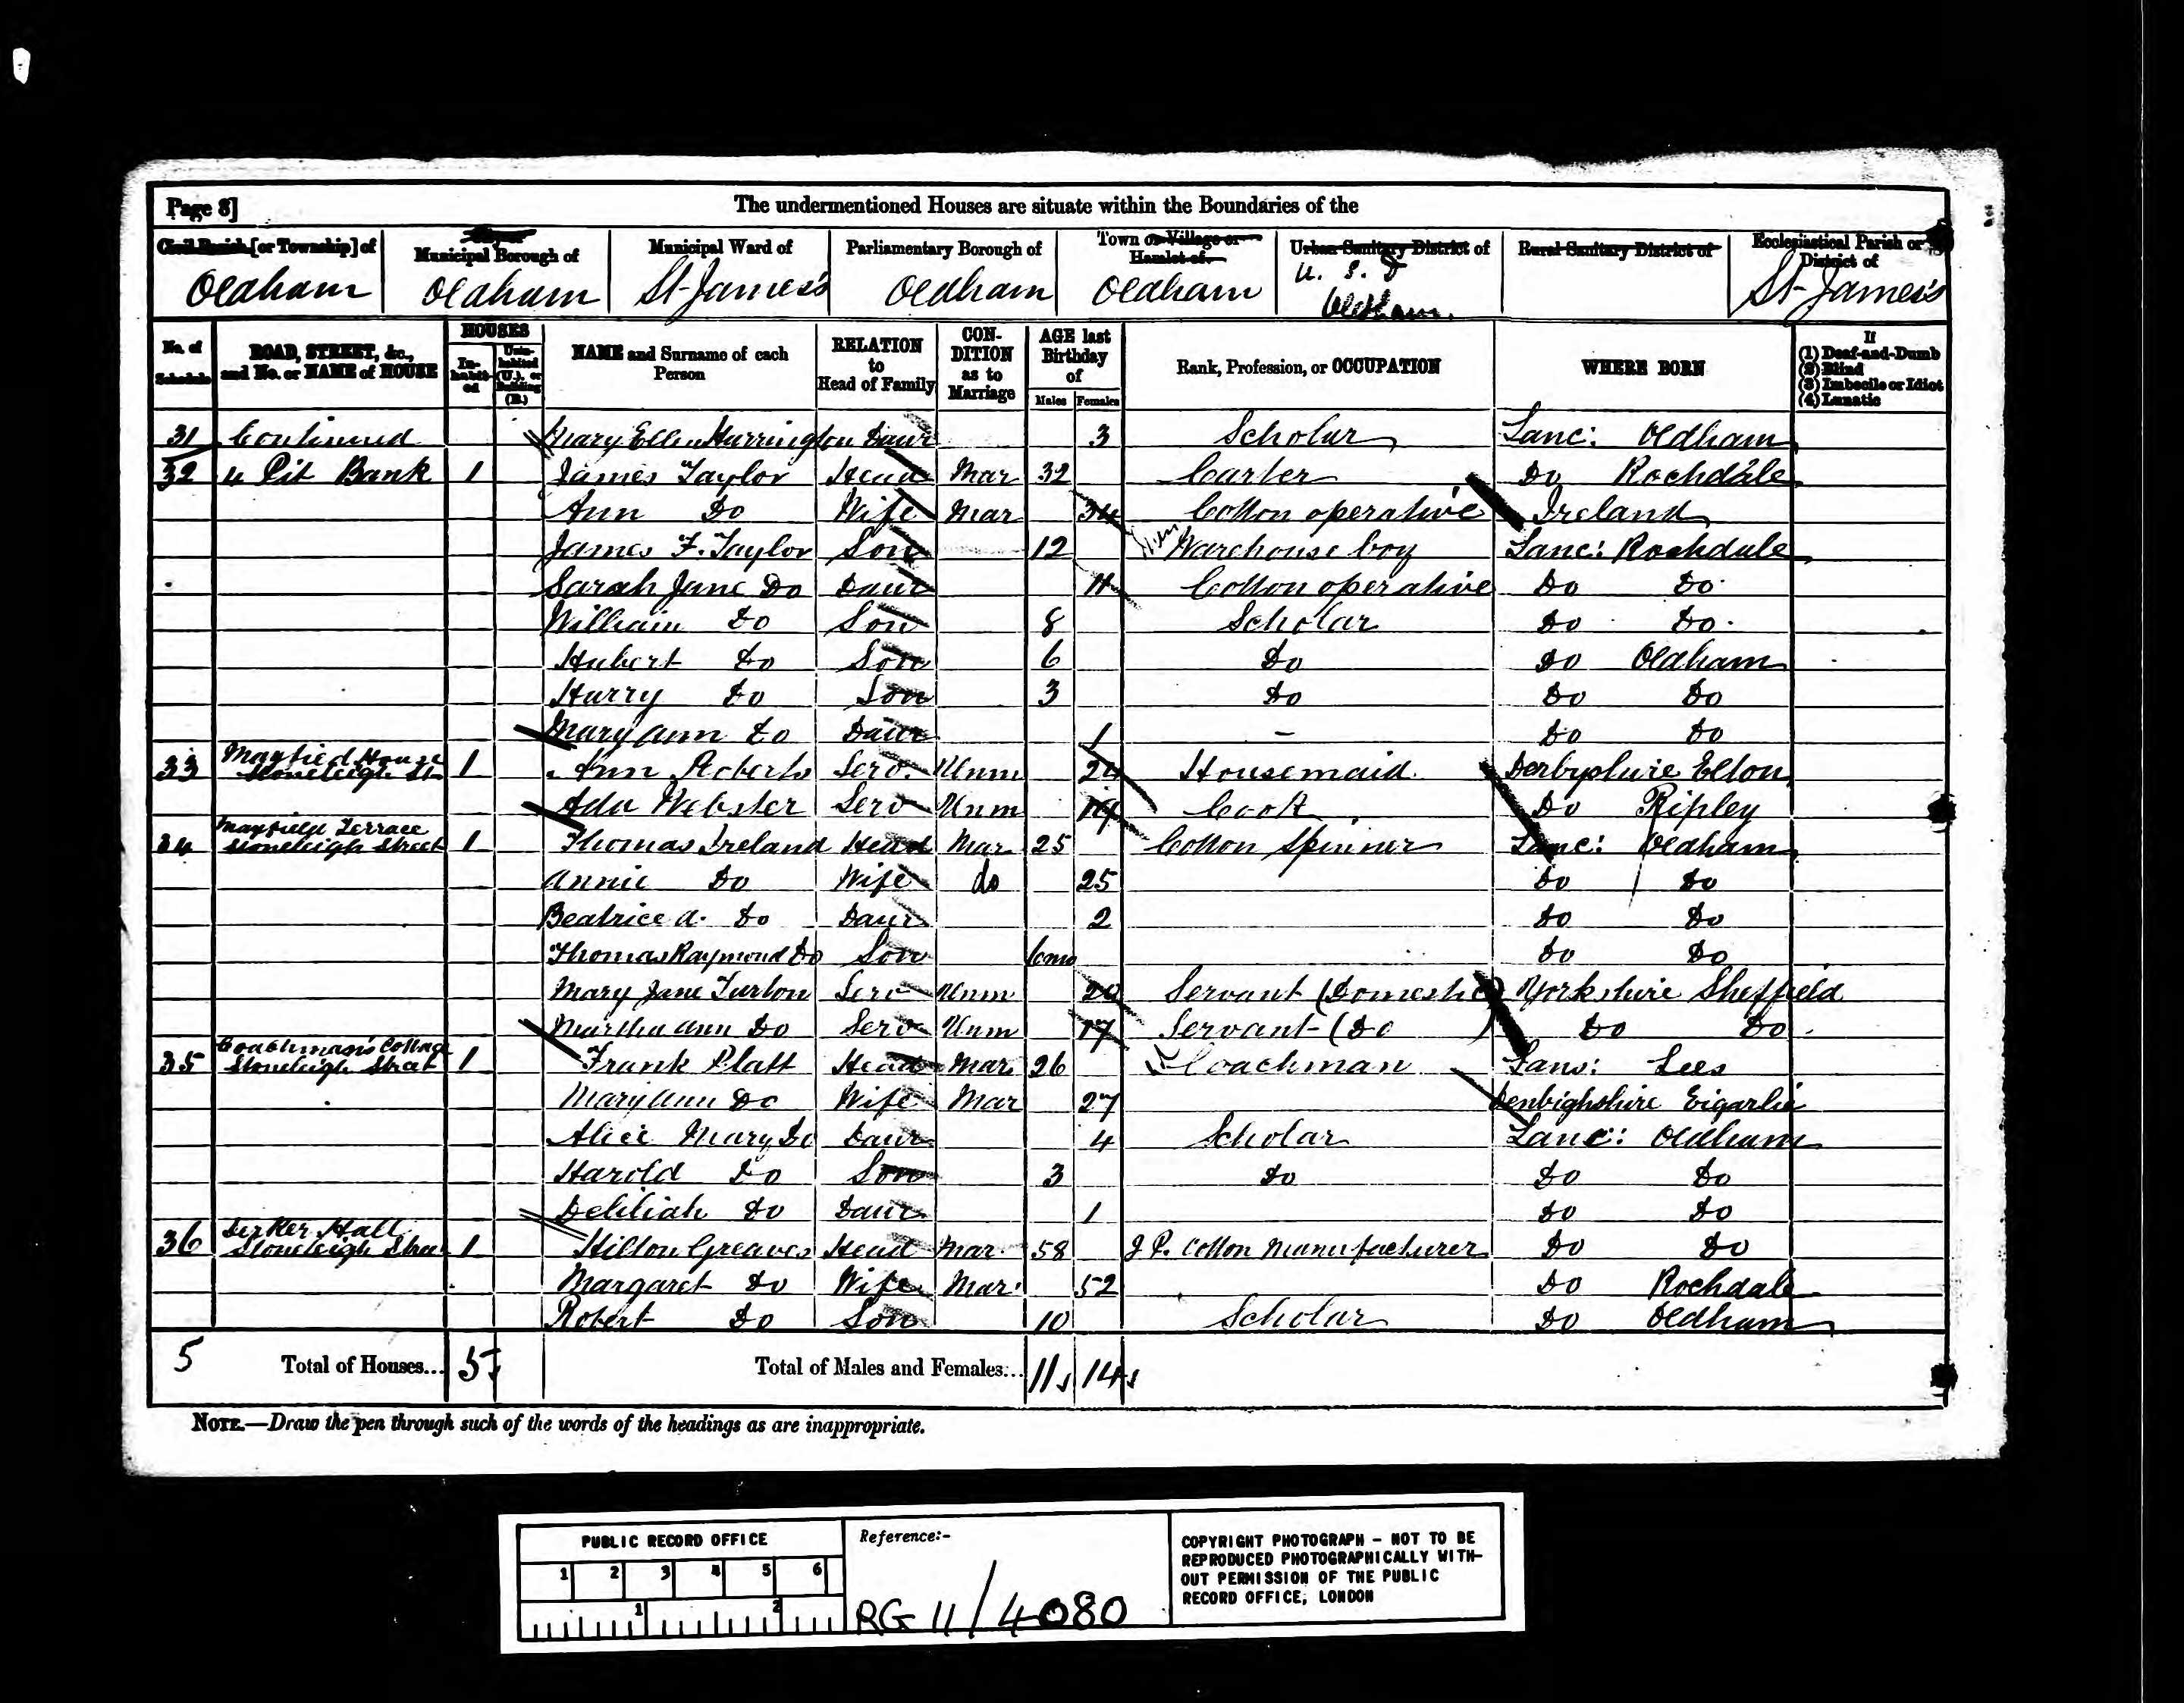 Page 8] The undermentioned Houses are situate within the Boundaries of the
Civil Parish [or Township] of Municipal Borough of Municipal Ward of Parliamentary Borough of Town or Village or Hamlet of Urban Sanitary District of Rural Sanitary District of Ecclesiastical Parish or District of
Oldham Oldham St James's Oldham Oldham U. S. D Oldham. St James's
No. of Schedule ROAD, STREET, &c., and No. or NAME of HOUSE HOUSES In-habit-ed Unin-habited (U.), or Building (B.) NAME and Surname of each Person RELATION to Head of Family CON-DITION as to Marriage AGE last Birthday of Males Females Rank, Profession, or OCCUPATION WHERE BORN If (1) Deaf-and-Dumb (2) Blind (3) Imbecile or Idiot (4) Lunatic
31 Continued Mary Ellen Harrington Daur 3 Scholar Lanc: Oldham
32 4 Pit Bank 1 James Taylor Head Mar 32 Carter Do Rochdale
Ann Do Wife Mar 34 Cotton operative Ireland
James F. Taylor Son 12 Warehouse boy Lanc: Rochdale
Sarah Jane Do Daur 11 Cotton operative Do Do
William Do Son 8 Scholar Do Do
Hubert Do Son 6 Do Do Oldham
Harry Do Son 3 Do Do Do
Mary Ann Do Daur 1 - Do Do
33 Mayfied House Stoneleigh St 1 Ann Roberts Serv. Unm 24 Housemaid Derbyshire Elton
Ada Webster Serv Unm 19 Cook Do Ripley
34 Mayfield Terrace Stoneleigh Street 1 Thomas Ireland Head Mar 25 Cotton Spinner Lanc: Oldham
Annie Do Wife do 25 Do Do
Beatrice A. Do Daur 2 Do Do
Thomas Raymond Do Son 6mo Do Do
Mary Jane Turton Serv Unm 20 Servant (Domestic) Yorkshire Sheffield
Martha Ann Do Serv Unm 17 Servant (Do ) Do Do
35 Coachman's Cottage Stoneleigh Street 1 Frank Platt Head Mar 26 Coachman Lanc: Lees
Mary Ann Do Wife Mar 27 Denbighshire
Alice Mary Do Daur 4 Scholar Lanc: Oldham
Harold Do Son 3 Do Do Do
Deliliah Do Daur 1 Do Do
36 Derker Hall Stoneleigh Street 1 Hilton Greaves Head Mar 58 J.P. Cotton Manufacturer Do Do
Margaret Do Wife Mar 52 Do Rochdale
Robert Do Son 10 Scholar Do Oldham
5 Total of Houses... 5 Total of Males and Females... 11 14
NOTE.—Draw the pen through such of the words of the headings as are inappropriate.
PUBLIC RECORD OFFICE
1 2 3 4 5 6
1 2
Reference:-
RG 11/4080
COPYRIGHT PHOTOGRAPH - NOT TO BE
REPRODUCED PHOTOGRAPHICALLY WITH-
OUT PERMISSION OF THE PUBLIC
RECORD OFFICE, LONDON